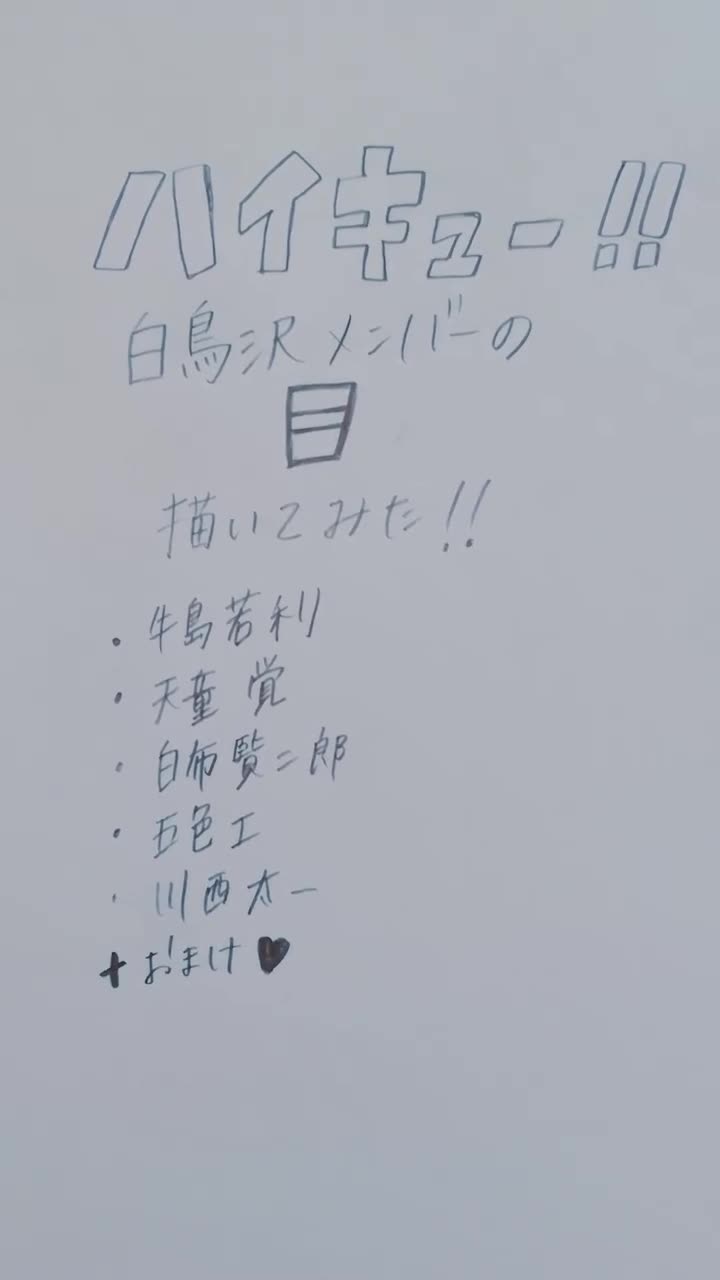 ハイキュー!!
白鳥沢メンバーの
目
描いてみた!!
・牛島若利
・天童 覚
・白布賢二郎
・五色工
・川西太一
+おまけ♥